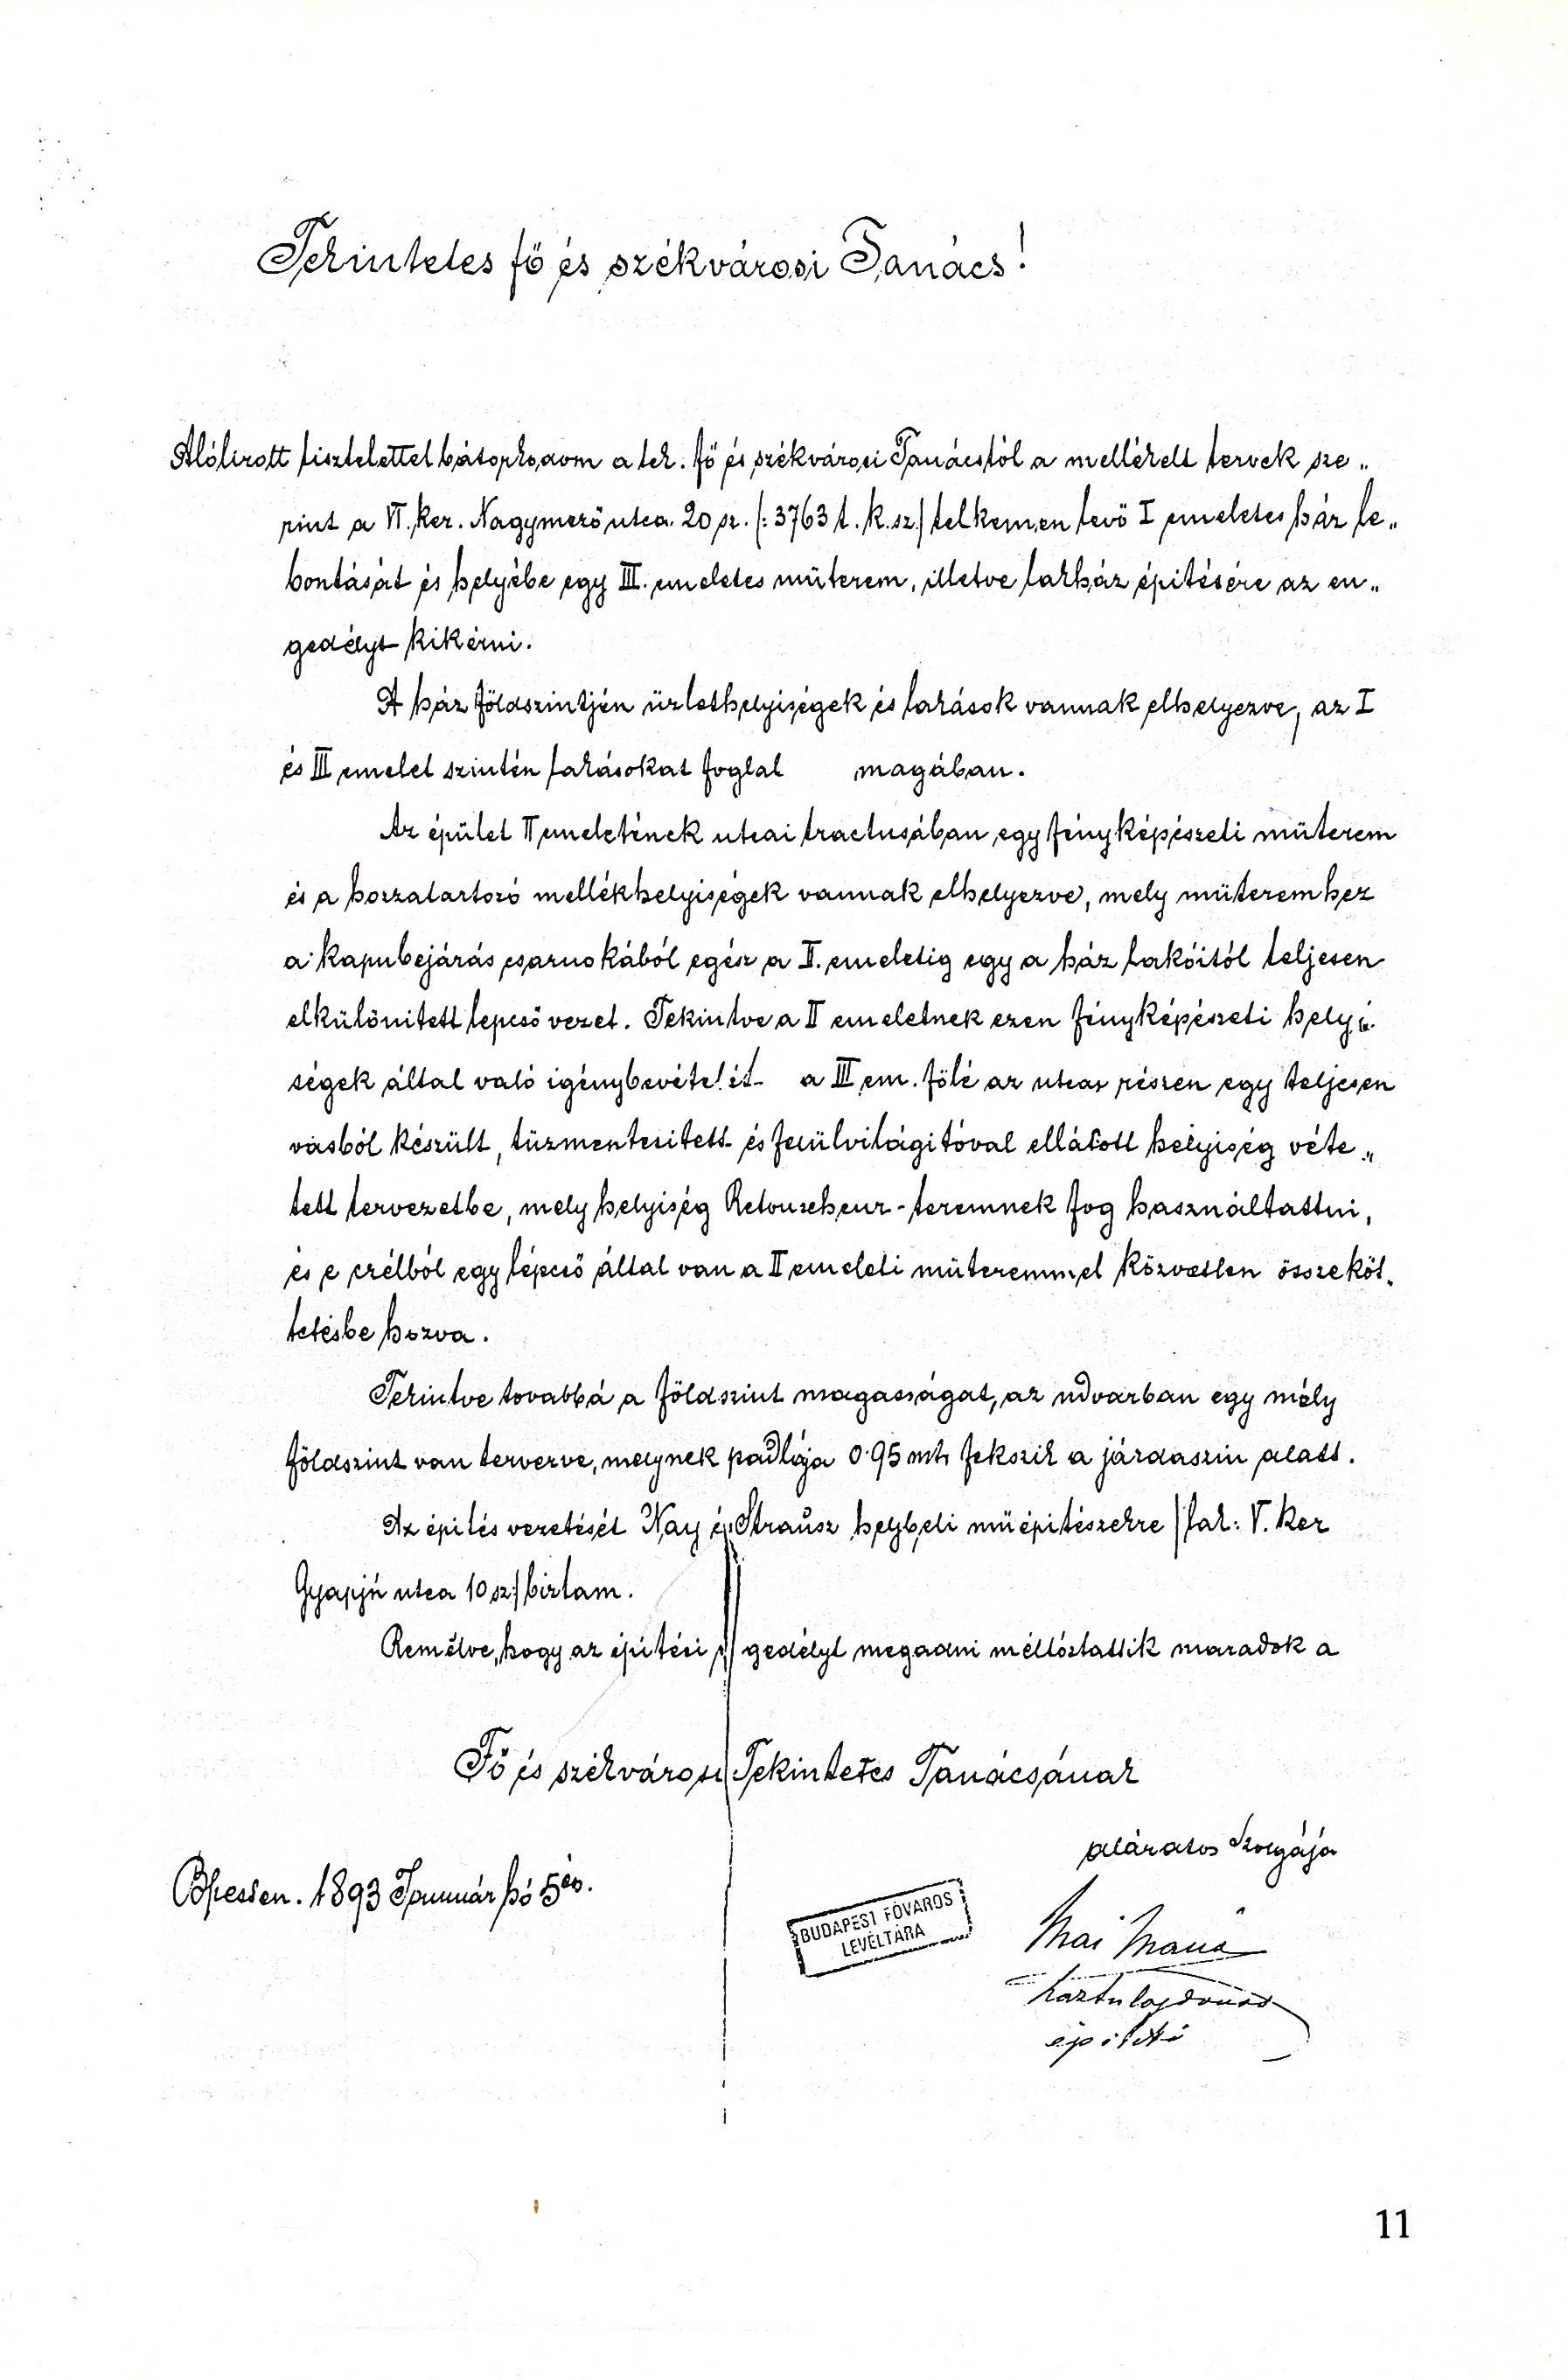 Tekintetes fő és székvárosi Tanács!
Alólirott tisztelettel bátorkodom a tek. fő és székvárosi Tanácstól a mellékelt tervek sze„
rint a VI. ker. Nagymező utca. 20 sz. /: 3763 t. k. sz./ telkemen levő I emeletes ház le„
bontását és helyébe egy III. emeletes műterem, illetve lakház épitésére az en„
gedélyt kikérni.
A ház földszintjén üzlethelyiségek és lakások vannak elhelyezve, az I
és III emelet szintén lakásokat foglal magában.
Az épület II emeletének utcai tractusában egy fényképészeti műterem
és a hozzátartozó mellékhelyiségek vannak elhelyezve, mely műteremhez
a kapubejárás csarnokából egész a II. emeletig egy a ház lakóitól teljesen
elkülönitett lepcső vezet. Tekintve a II emeletnek ezen fényképészeti helyi„
ségek által való igénybevételét a III em. fölé az utcai részen egy teljesen
vasból készült, tüzmentesitett és felülvilágitóval ellátott helyiség véte„
tett tervezetbe, mely helyiség Retoucheur-teremnek fog használtattni,
és e czélból egy lépcső által van a II emeleti műteremmel közvetlen összeköt„
tetésbe hozva.
Tekintve továbbá a földszint magasságat, az udvarban egy mély
földszint van tervezve, melynek padlója 0·95 mt. fekszik a járdaszin alatt.
Az épités vezetését Nay és Strausz helybeli műépitészekre /lak: V. ker
Gyapjú utca 10 sz:/ biztam.
Remélve, hogy az épitési gedélyt megadni méltóztattik maradok a
Fő és székvárosi Tekintetes Tanácsának
alázatos Szolgája
Bpesten. 1893 Januárhó 5én.
BUDAPEST FŐVÁROS
LEVÉLTÁRA
Mai Manó
háztulajdonos
épitető
11